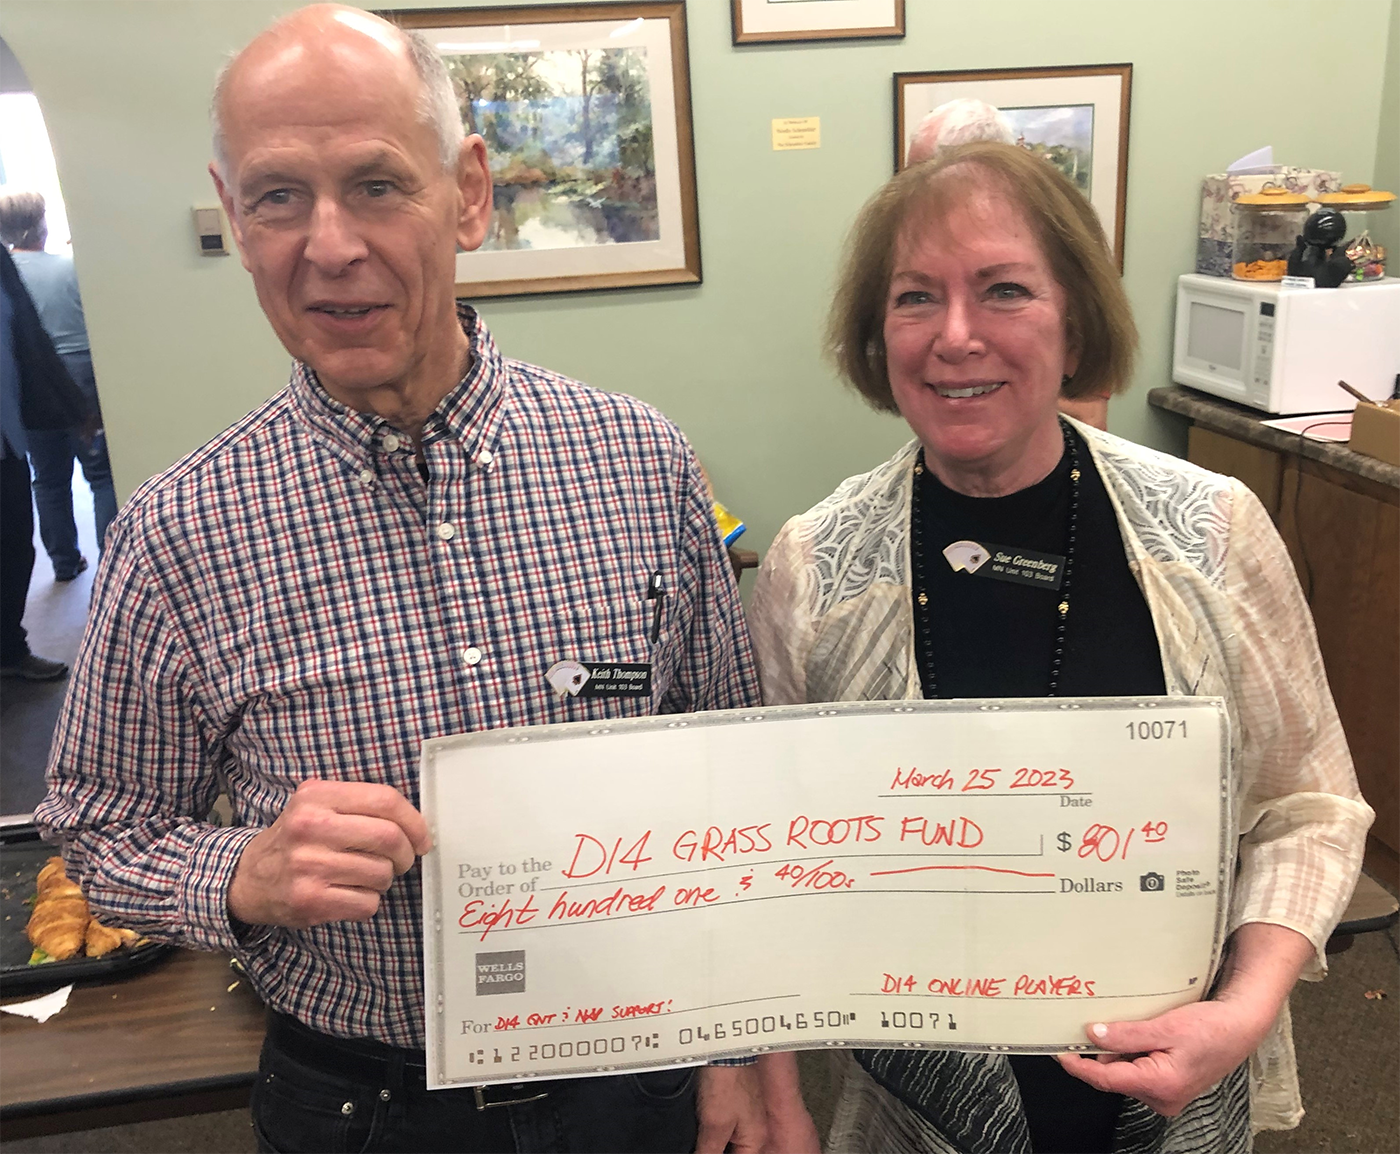 Keith Thompson
MN Unit 103 Board
Sue Greenberg
MN Unit 103 Board
10071
March 25 2023
Date
Pay to the
Order of
D14 GRASS ROOTS FUND
$ 801 40
Eight hundred one & 40/100s
Dollars
Photo
Safe
Deposit®
Details on back
WELLS
FARGO
D14 ONLINE PLAYERS
For D14 GNT & NAP SUPPORT!
122000007 0465004650 10071